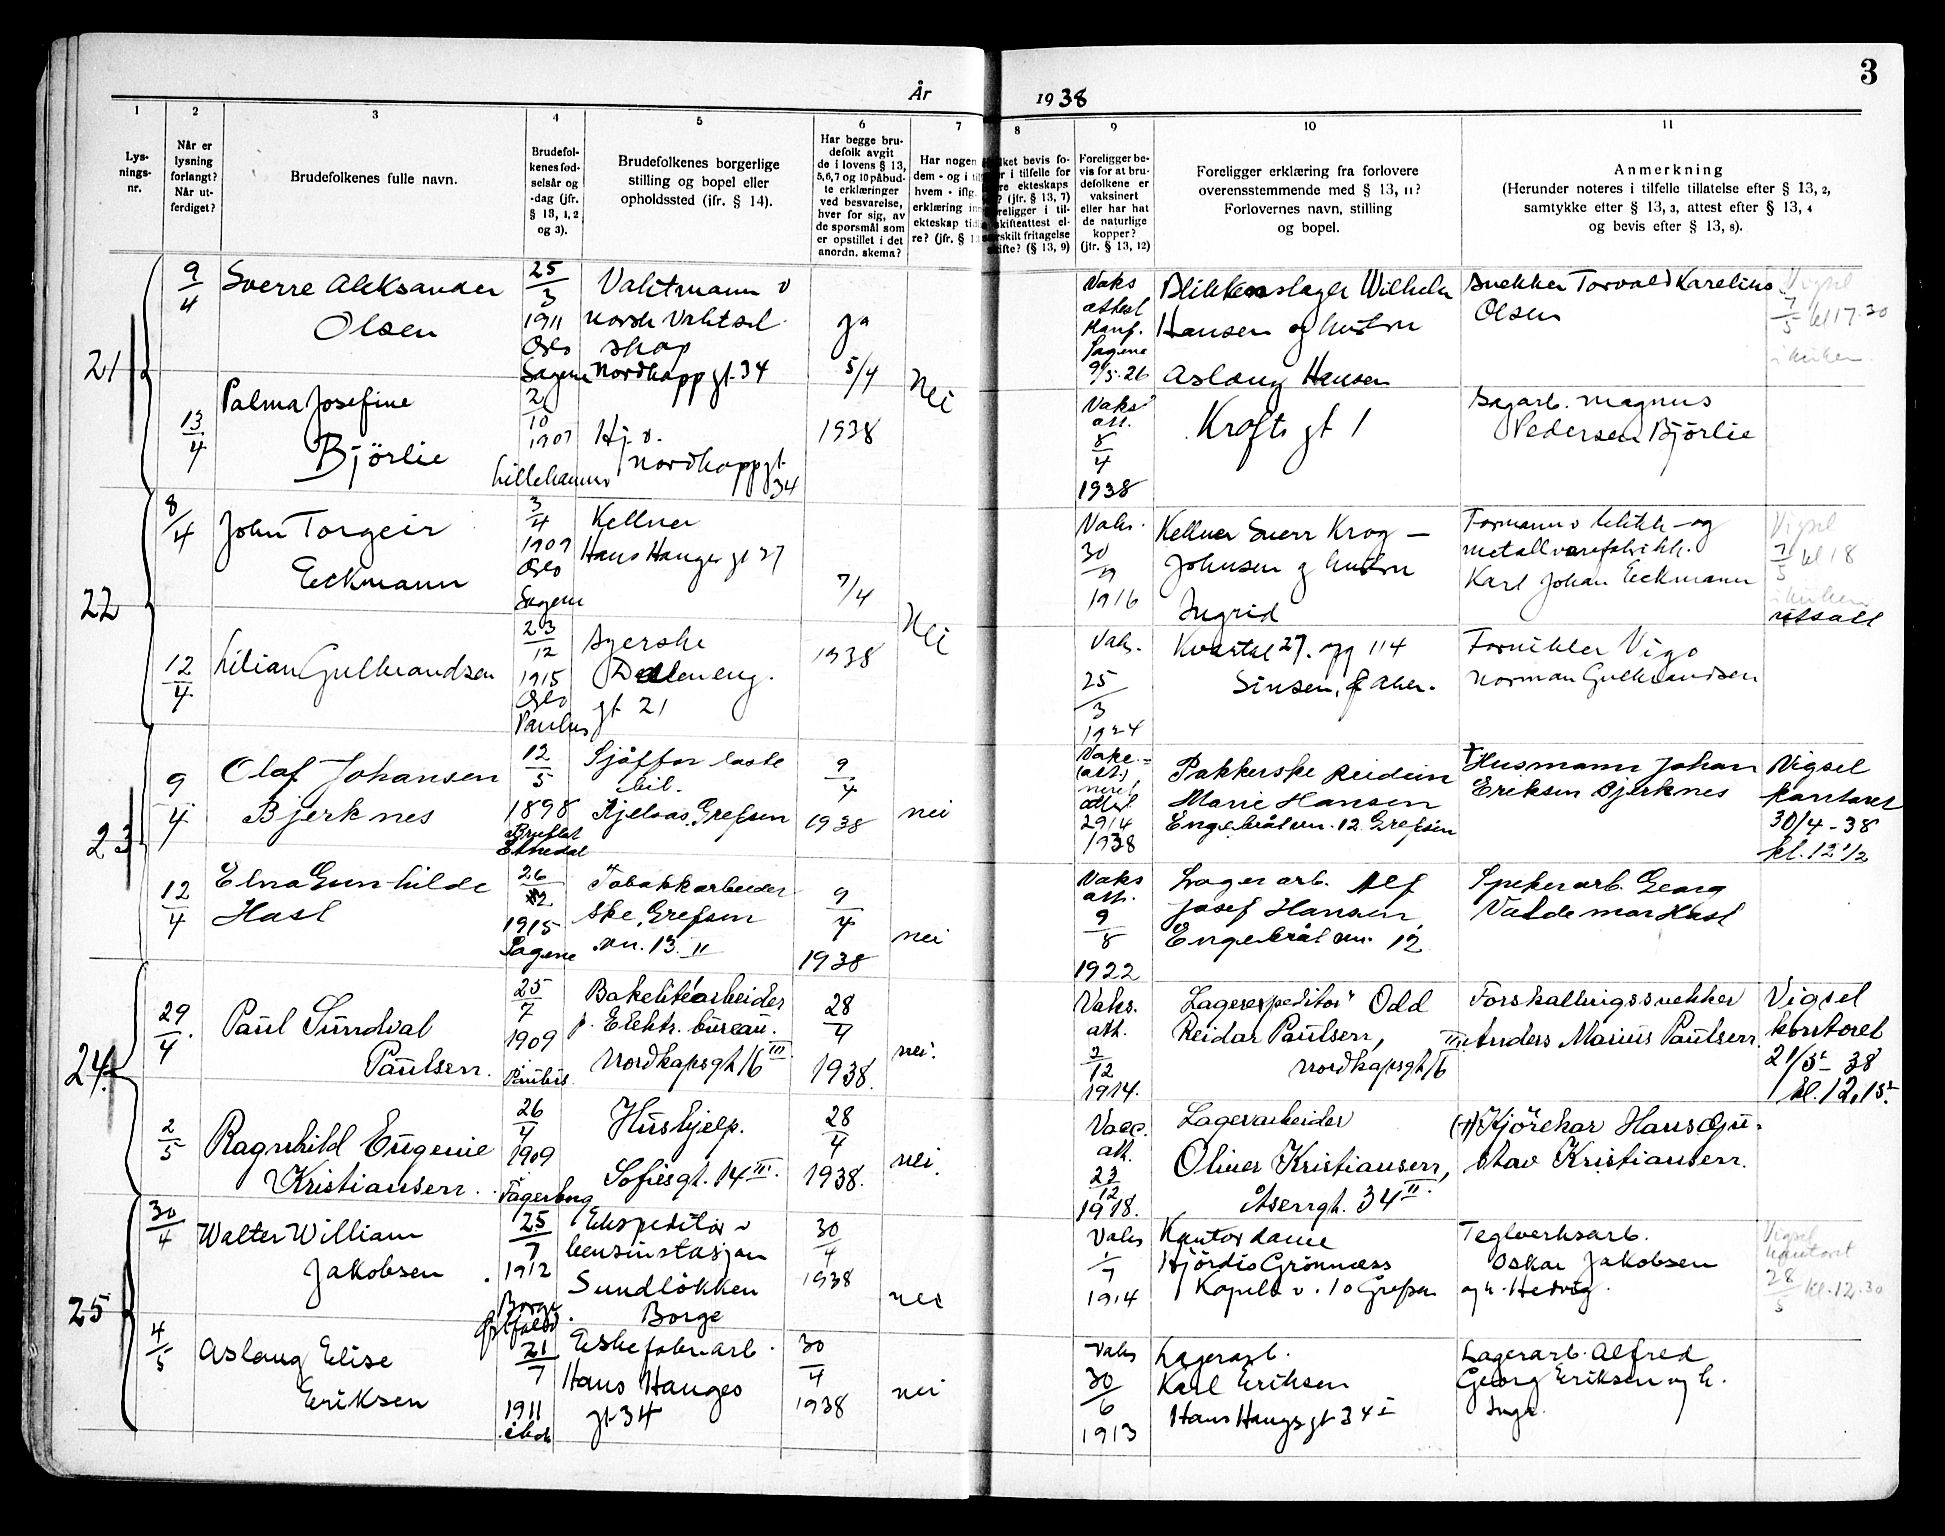 3
År 1938
1
Lys-
nings-
nr.
2
Når er
lysning
forlangt?
Når ut-
ferdiget?
3
Brudefolkenes fulle navn.
4
Brudefol-
kenes fød-
selsår og
-dag (jfr.
§ 13, 1, 2
og 3).
5
Brudefolkenes borgerlige
stilling og bopel eller
opholdssted (jfr. § 14).
6
Har begge bru-
defolk avgit
de i lovens § 13,
5, 6, 7 og 10 påbud-
te erklæringer
ved besvarelse,
hver for sig, av
de spørsmål som
er opstillet i det
anordn. skema?
7
Har nogen
dem - og i
hvem - iflg.
erklæring
ekteskap
re? (jfr. §
8
bevis fo-
i tilfelle for
ekteskaps
? (jfr. § 13, 7)
i til-
skifteattest el-
fritagelse
(§ 13, 9)
9
Foreligger be-
vis for at bru-
defolkene er
vaksinert
eller har hat
de naturlige
kopper?
(jfr. § 13, 12)
10
Foreligger erklæring fra forlovere
overensstemmende med § 13, 11?
Forlovernes navn, stilling
og bopel.
11
Anmerkning
(Herunder noteres i tilfelle tillatelse efter § 13, 2,
samtykke efter § 13, 3, attest efter § 13, 4
og bevis efter § 13, 8).
21
9/4
Sverre Aleksander
Olsen
25/3
1911
Oslo
Sagene
Vaktmann v
Norsk Vaktsel
skap
Nordkapp gt. 34
ja
5/4
1938
nei
Vaks
attest
Sagene
9/5.26
Blikkenslager Wilhelm
Hansen og hustru
Aslaug Hansen
Krofts gt 1
Snekker Torvald Karelius
Olsen
Vigsel
7/5 kl 17.30
i kirken
13/4
Palma Josefine
Bjørlie
2/10
1907
Lillehammer
Hj. v.
Nordkapp gt.
34
Vaks
att.
8/4
1938
Sagarb. Magnus
Pedersen Bjørlie
22
8/4
John Torgeir
Eckmann
3/4
1907
Oslo
Sagene
Kellner
Hans Hauges gt 27
7/4
1938
nei
Vaks.
30/9
1916
Kellner Sverr Krog –
Johnsen og hustru
Ingrid
Kvartal 27. opg 114
Sinsen, Aker.
Formann v blikk- og
metallvarefabrikk.
Karl Johan Eckmann
Vigsel
7/5 kl 18
i kirken
utsatt
12/4
Lilian Gulbrandsen
23/12
1915
Oslo
Paulus
Syerske
Dæleneng.
gt 21
Vaks.
25/3
1924
Fornikler Vigo
Norman Gulbrandsen
23
9/4
Olaf Johansen
Bjerknes
12/5
1898
Bruflat
Etnedal
Sjåffør laste
bil.
Kjelsås, Grefsen
9/4
1938
nei
Vaks.=
(att.)
29/4
1938
Pakkerske Reidun
Marie Hansen
Engebråt vn. 12 Grefsen
†Husmann Johan
Eriksen Bjerknes
Vigsel
kontoret
30/4 - 38
kl. 12 1/2
12/4
Elna Gunhilde
Hasl
26/12
1915
Sagene
Tobakkarbeider-
ske, Grefsen
vn. 13 II
9/4
1938
nei
Vaks
att.
9/8
1922
Lagerarb. Alf
Josef Hansen,
Engebråt vn. 12
Spekerarb. Georg
Valdemar Hasl
24.
29/4.
Paul Sundval
Paulsen.
25/7
1909
Paulus.
Bakelitearbeider
p. Elektr. bureau.
Nordkapsgt. 16 III
28/4
1938.
nei.
Vaks.
att.
2/12
1914.
Lagerexpeditør Odd
Reidar Paulsen,
Nordkapsgt. 16 III
Forskallingssnekker
Anders Marius Paulsen.
Vigsel
kontoret
21/5 - 38
kl. 12.15.
2/5
Ragnhild Eugenie
Kristiansen.
26/4
1909
Fagerborg
Hushjelp.
Sofiesgt. 14 III.
28/4
1938.
nei.
Vacc.
att.
23/12
1918.
Lagerarbeider
Oliver Kristiansen,
Åsengt. 34 II.
(†) Kjørekar Hans Gu-
stav Kristiansen.
25
30/4
Walter William
Jakobsen
25/7
1912
Borge
Østfold
Ekspeditør v
bensinstasjon
Sundløkken
Borge
30/4
1938
nei
Vaks
1/7
1914
Kontordame
Hjørdis Grønnæss
Kapell v. 10 Grefsen
Teglverksarb.
Oskar Jakobsen
og h. Hedvig.
Vigsel
kontoret
28/5 kl. 12.30
4/5
Aslaug Elise
Eriksen
21/7
1911
ibd.
Eskefabr.arb.
Hans Hauges
gt 34
30/4
1938
nei
Vaks
30/6
1913
Lagerarb.
Karl Eriksen
Hans Haugs gt 34 I
Lagerarb. Alfred
Georg Eriksen og h.
Inga.